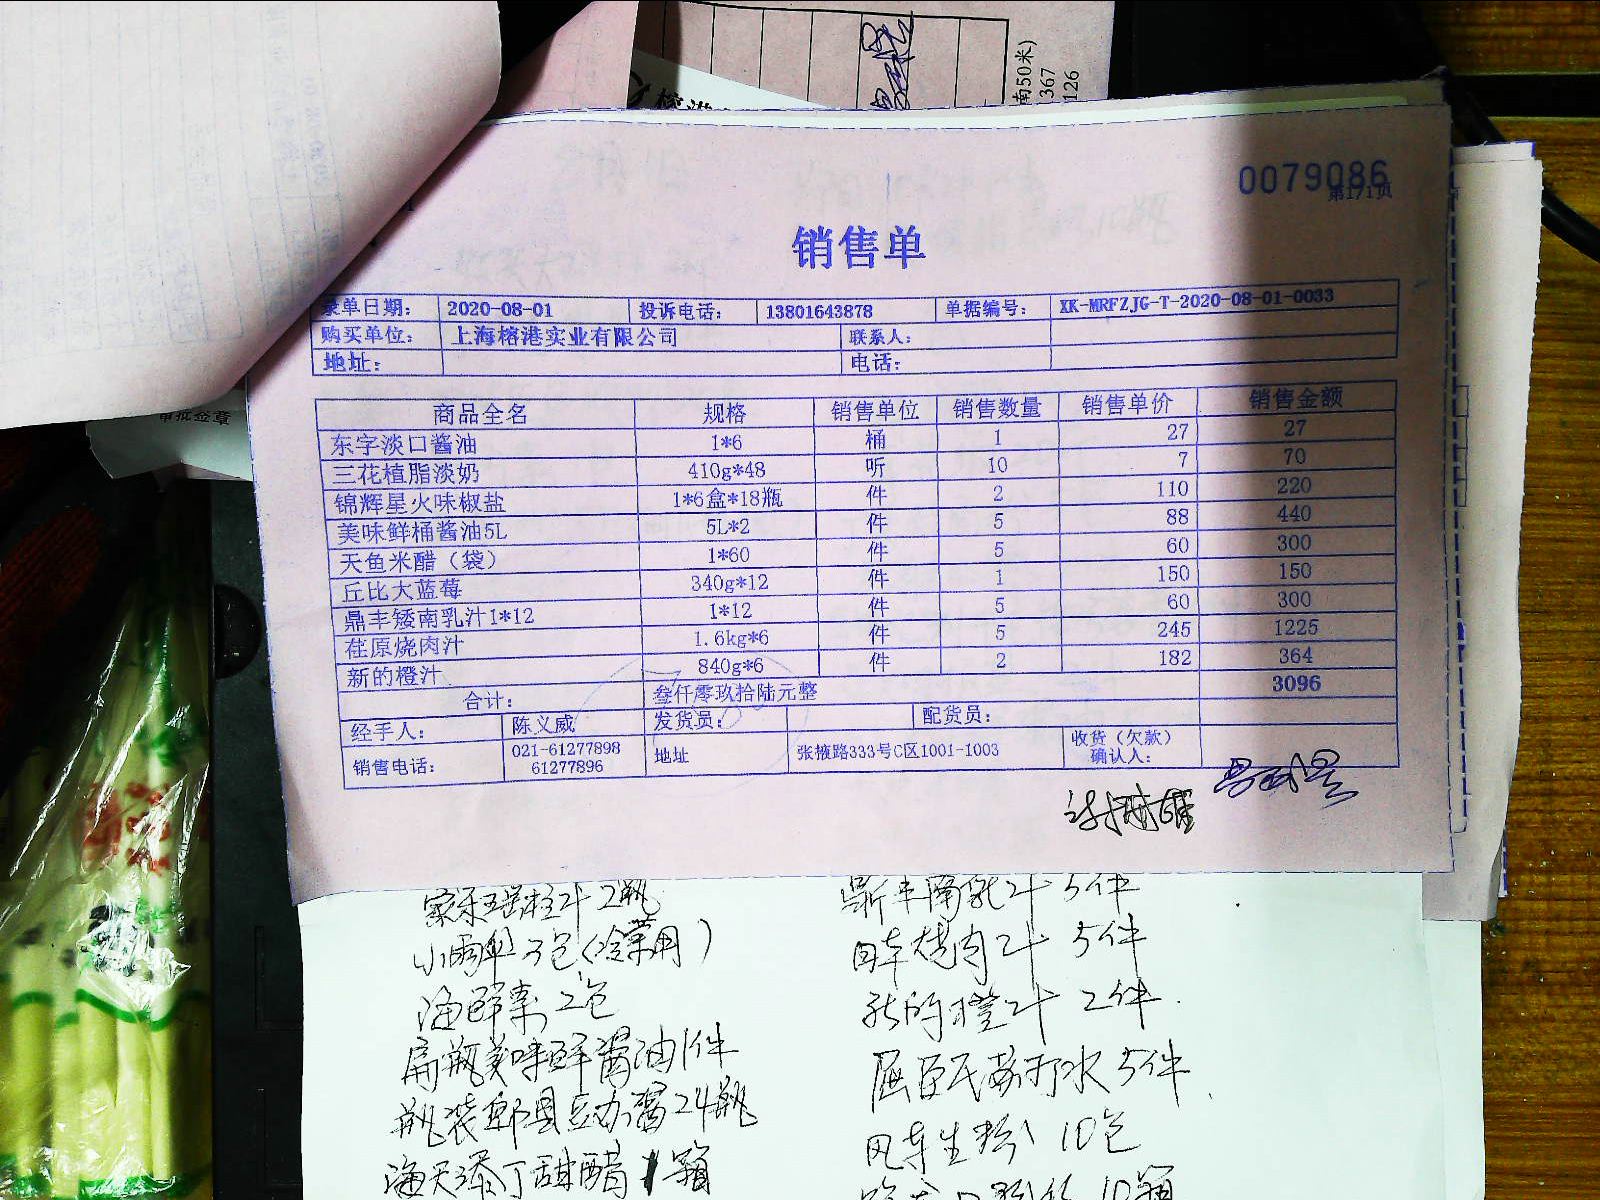 南50米)
367
126
审批签章
0079086
第1/1页
销售单
录单日期: 2020-08-01 投诉电话: 13801643878 单据编号: XK-MRFZJG-T-2020-08-01-0033
购买单位: 上海榕港实业有限公司 联系人:
地址: 电话:
商品全名 规格 销售单位 销售数量 销售单价 销售金额
东字淡口酱油 1*6 桶 1 27 27
三花植脂淡奶 410g*48 听 10 7 70
锦辉星火味椒盐 1*6盒*18瓶 件 2 110 220
美味鲜桶酱油5L 5L*2 件 5 88 440
天鱼米醋（袋） 1*60 件 5 60 300
丘比大蓝莓 340g*12 件 1 150 150
鼎丰矮南乳汁1*12 1*12 件 5 60 300
荏原烧肉汁 1.6kg*6 件 5 245 1225
新的橙汁 840g*6 件 2 182 364
合计: 叁仟零玖拾陆元整 3096
经手人: 陈义威 发货员: 配货员:
销售电话: 021-61277898 61277896 地址 张掖路333号C区1001-1003 收货（欠款）确认人:
海鲜素2包
扁瓶美味鲜酱油1件
瓶装郫县豆办酱24瓶
海天添丁甜醋1箱
新的橙汁 2件
屈臣氏苏打水5件
风车生粉 10包